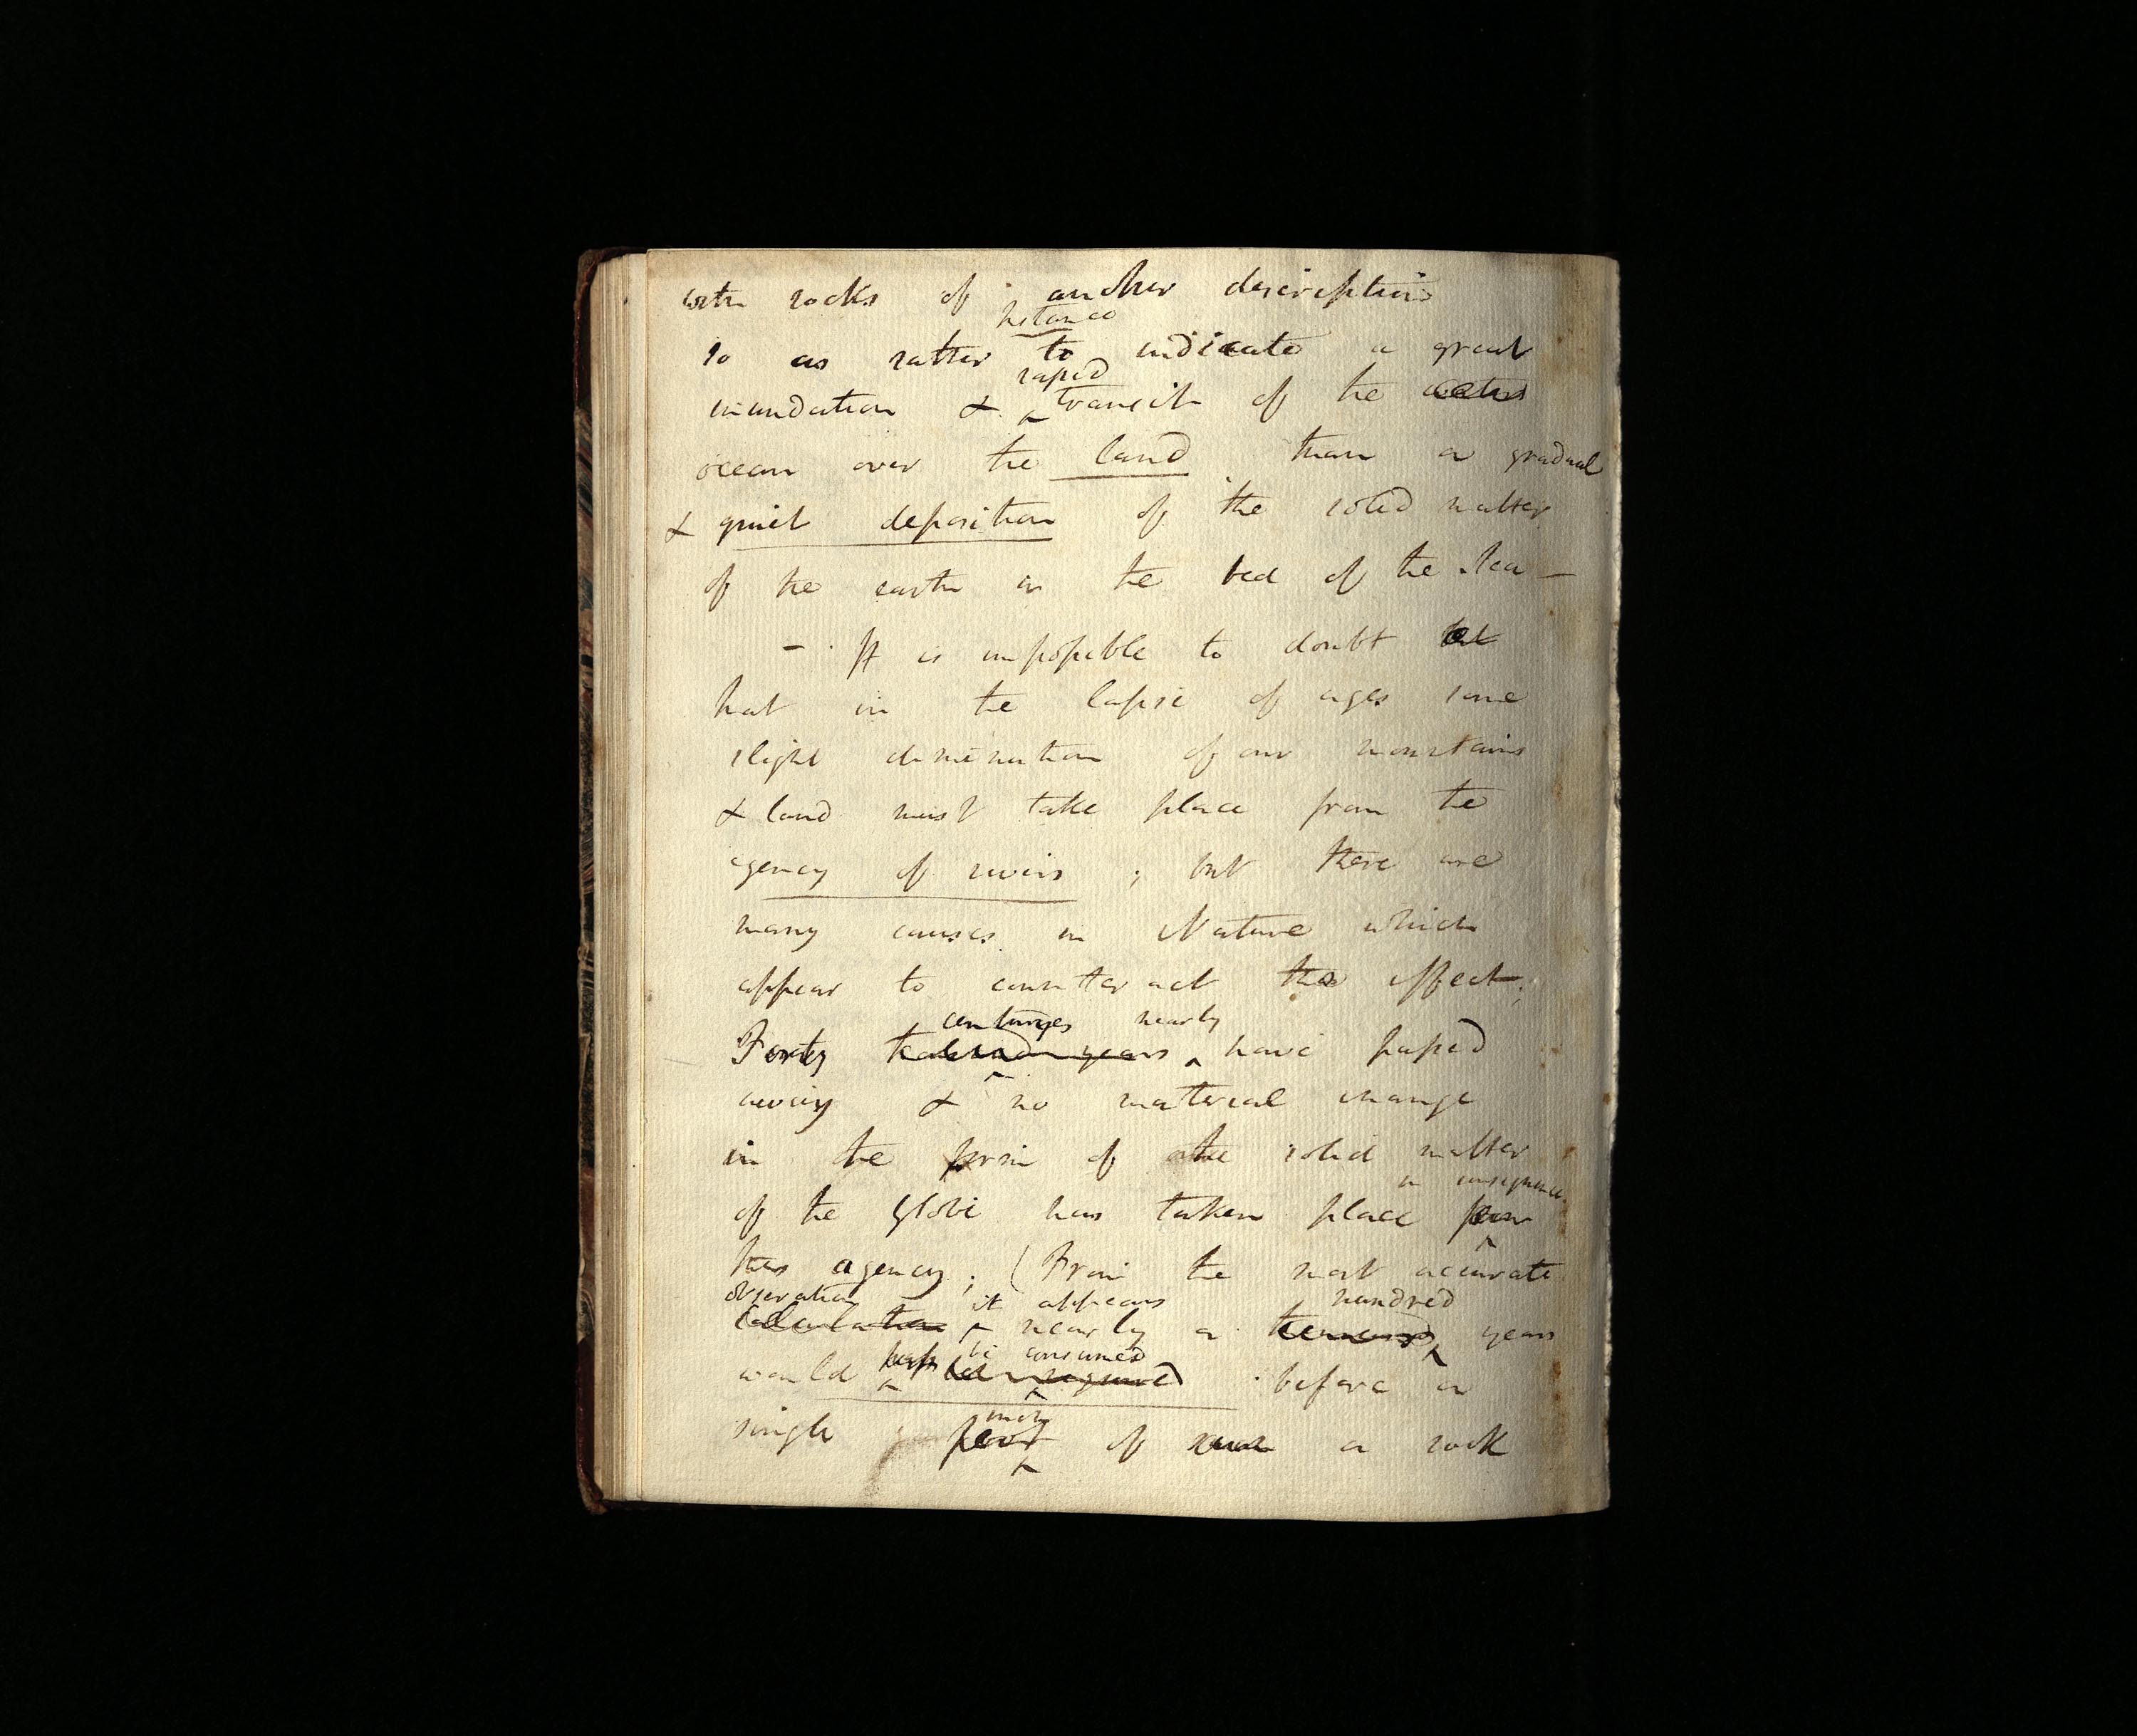 with rocks of another description
instance
so as rather to indicate a great
rapid
inundation & transit of the
ocean over the land than a gradual
& quiet deposition of the solid matter
of the earth in the bed of the Sea –
– It is impossible to doubt but
that in the lapse of ages some
slight diminution of our mountains
& land must take place from the
agency of rivers ; but there are
many causes in Nature which
appear to counteract the effect;
centuries nearly
Forty thousand years have passed
away & no material change
in the form of the solid matter
in consequence
of the globe has taken place from
this agency; (From the most accurate
observation it appears hundred
calculation nearly a thousand years
perhps be consumed
would be required before a
inch
single foot of such a rock